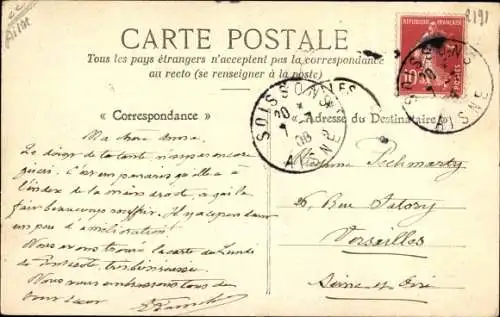 Aisne
2191
CARTE POSTALE
Tous les pays étrangers n'acceptent pas la correspondance
au recto (se renseigner à la poste)
RÉPUBLIQUE FRANÇAISE
10
POSTES
SOISSONS
AISNE
SOISSONS
AISNE
« Correspondance »
« Adresse du Destinataire »
Ma chère
Le doigt de ta tante n'est pas encore
guéri. C'est un panaris qu'elle a à
l'index de la main droite, qui l'a
fait beaucoup souffrir. Il y a cependant
un peu d'amélioration!
Nous avons trouvé la carte de Lundi
de
Nous vous embrassons tous de
bon cœur
Madame
Rue Satory
Versailles
Seine et Oise